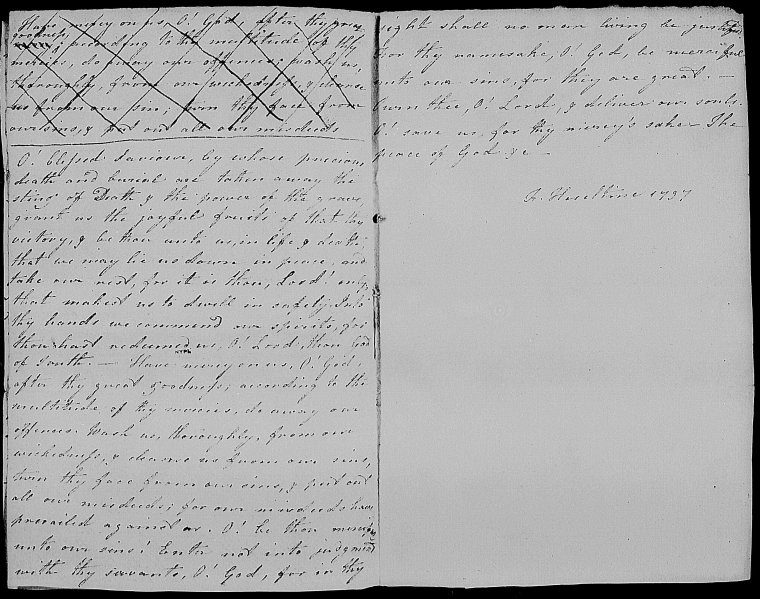 Have mercy on us, O! God, after thy great
goodness, according to the multitude of thy
mercies, do away our offences; wash us,
thoroughly, from our wickedness, & cleanse
us from our sin; turn thy face from
our sins, & put out all our misdeeds
O! blessed Saviour, by whose precious
death and burial are taken away the
sting of Death & the power of the grave,
grant us the joyful fruits of that thy
victory, & be thou unto us, in life & death;
that we may lie us down in peace, and
take our rest, for it is thou, Lord! only,
that makest us to dwell in safety. Into
thy hands we commend our spirits, for
thou hast redeemed us, O! Lord, thou God
of truth. — Have mercy on us, O! God,
after thy great goodness; according to the
multitude of thy mercies, do away our
offences. Wash us, thoroughly, from our
wickedness, & cleanse us from our sins,
turn thy face from our sins, & put out
all our misdeeds; for our misdeeds have
prevailed against us. O! be thou merciful
unto our sins! Enter not into judgment
with thy servants, O! God, for in thy
sight shall no man living be justified
For thy namesake, O! God, be merciful
unto our sins, for they are great. —
turn thee, O! Lord, & deliver our souls.
O! save us, for thy mercy's sake — The
peace of God &c —
Heseltine 1797